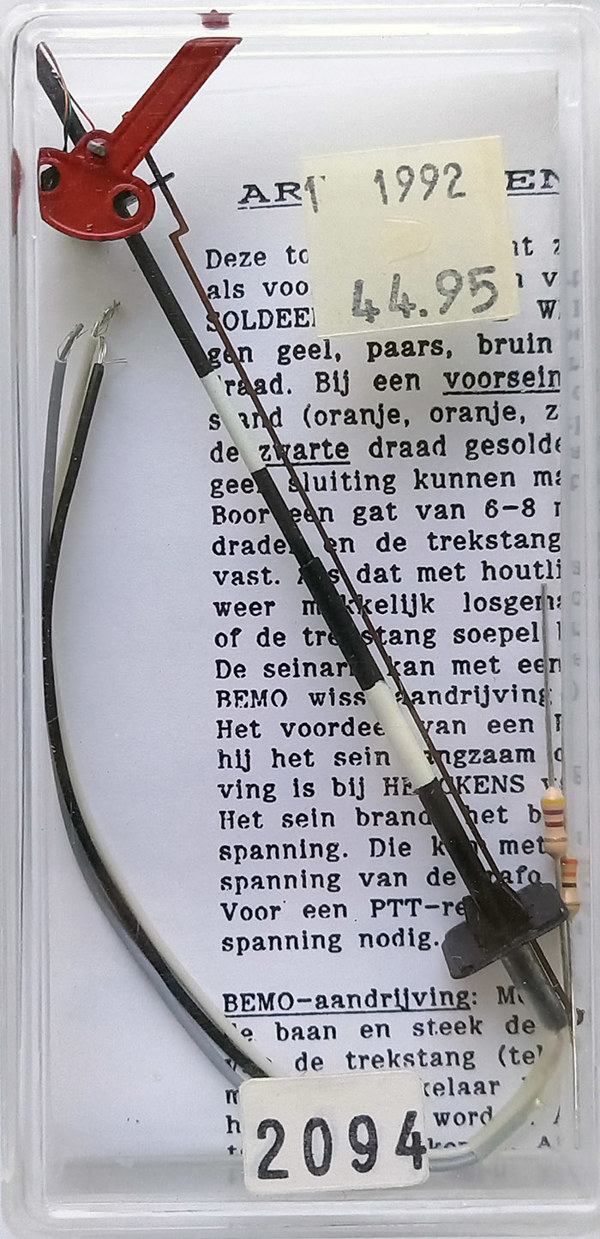 1992
44.95
AR
Deze
als voo
SOLDEE
gen geel, paars, bruin
draad. Bij een voorsein
stand (oranje, oranje, z
de zwarte draad gesolde
geen sluiting kunnen ma
Boor een gat van 6-8
draden en de trekstang
vast. Als dat met houtli
weer makkelijk losgema
of de trekstang soepel
De seinarm kan met een
BEMO wiss aandrijving
Het voordeel van een
hij het sein langzaam
ving is bij HE CKENS
Het sein brand het b
spanning. Die kan met
spanning van de trafo
Voor een PTT-re
spanning nodig.
BEMO-aandrijving: M
de baan en steek de
de trekstang (tel
kelaar
word
2094